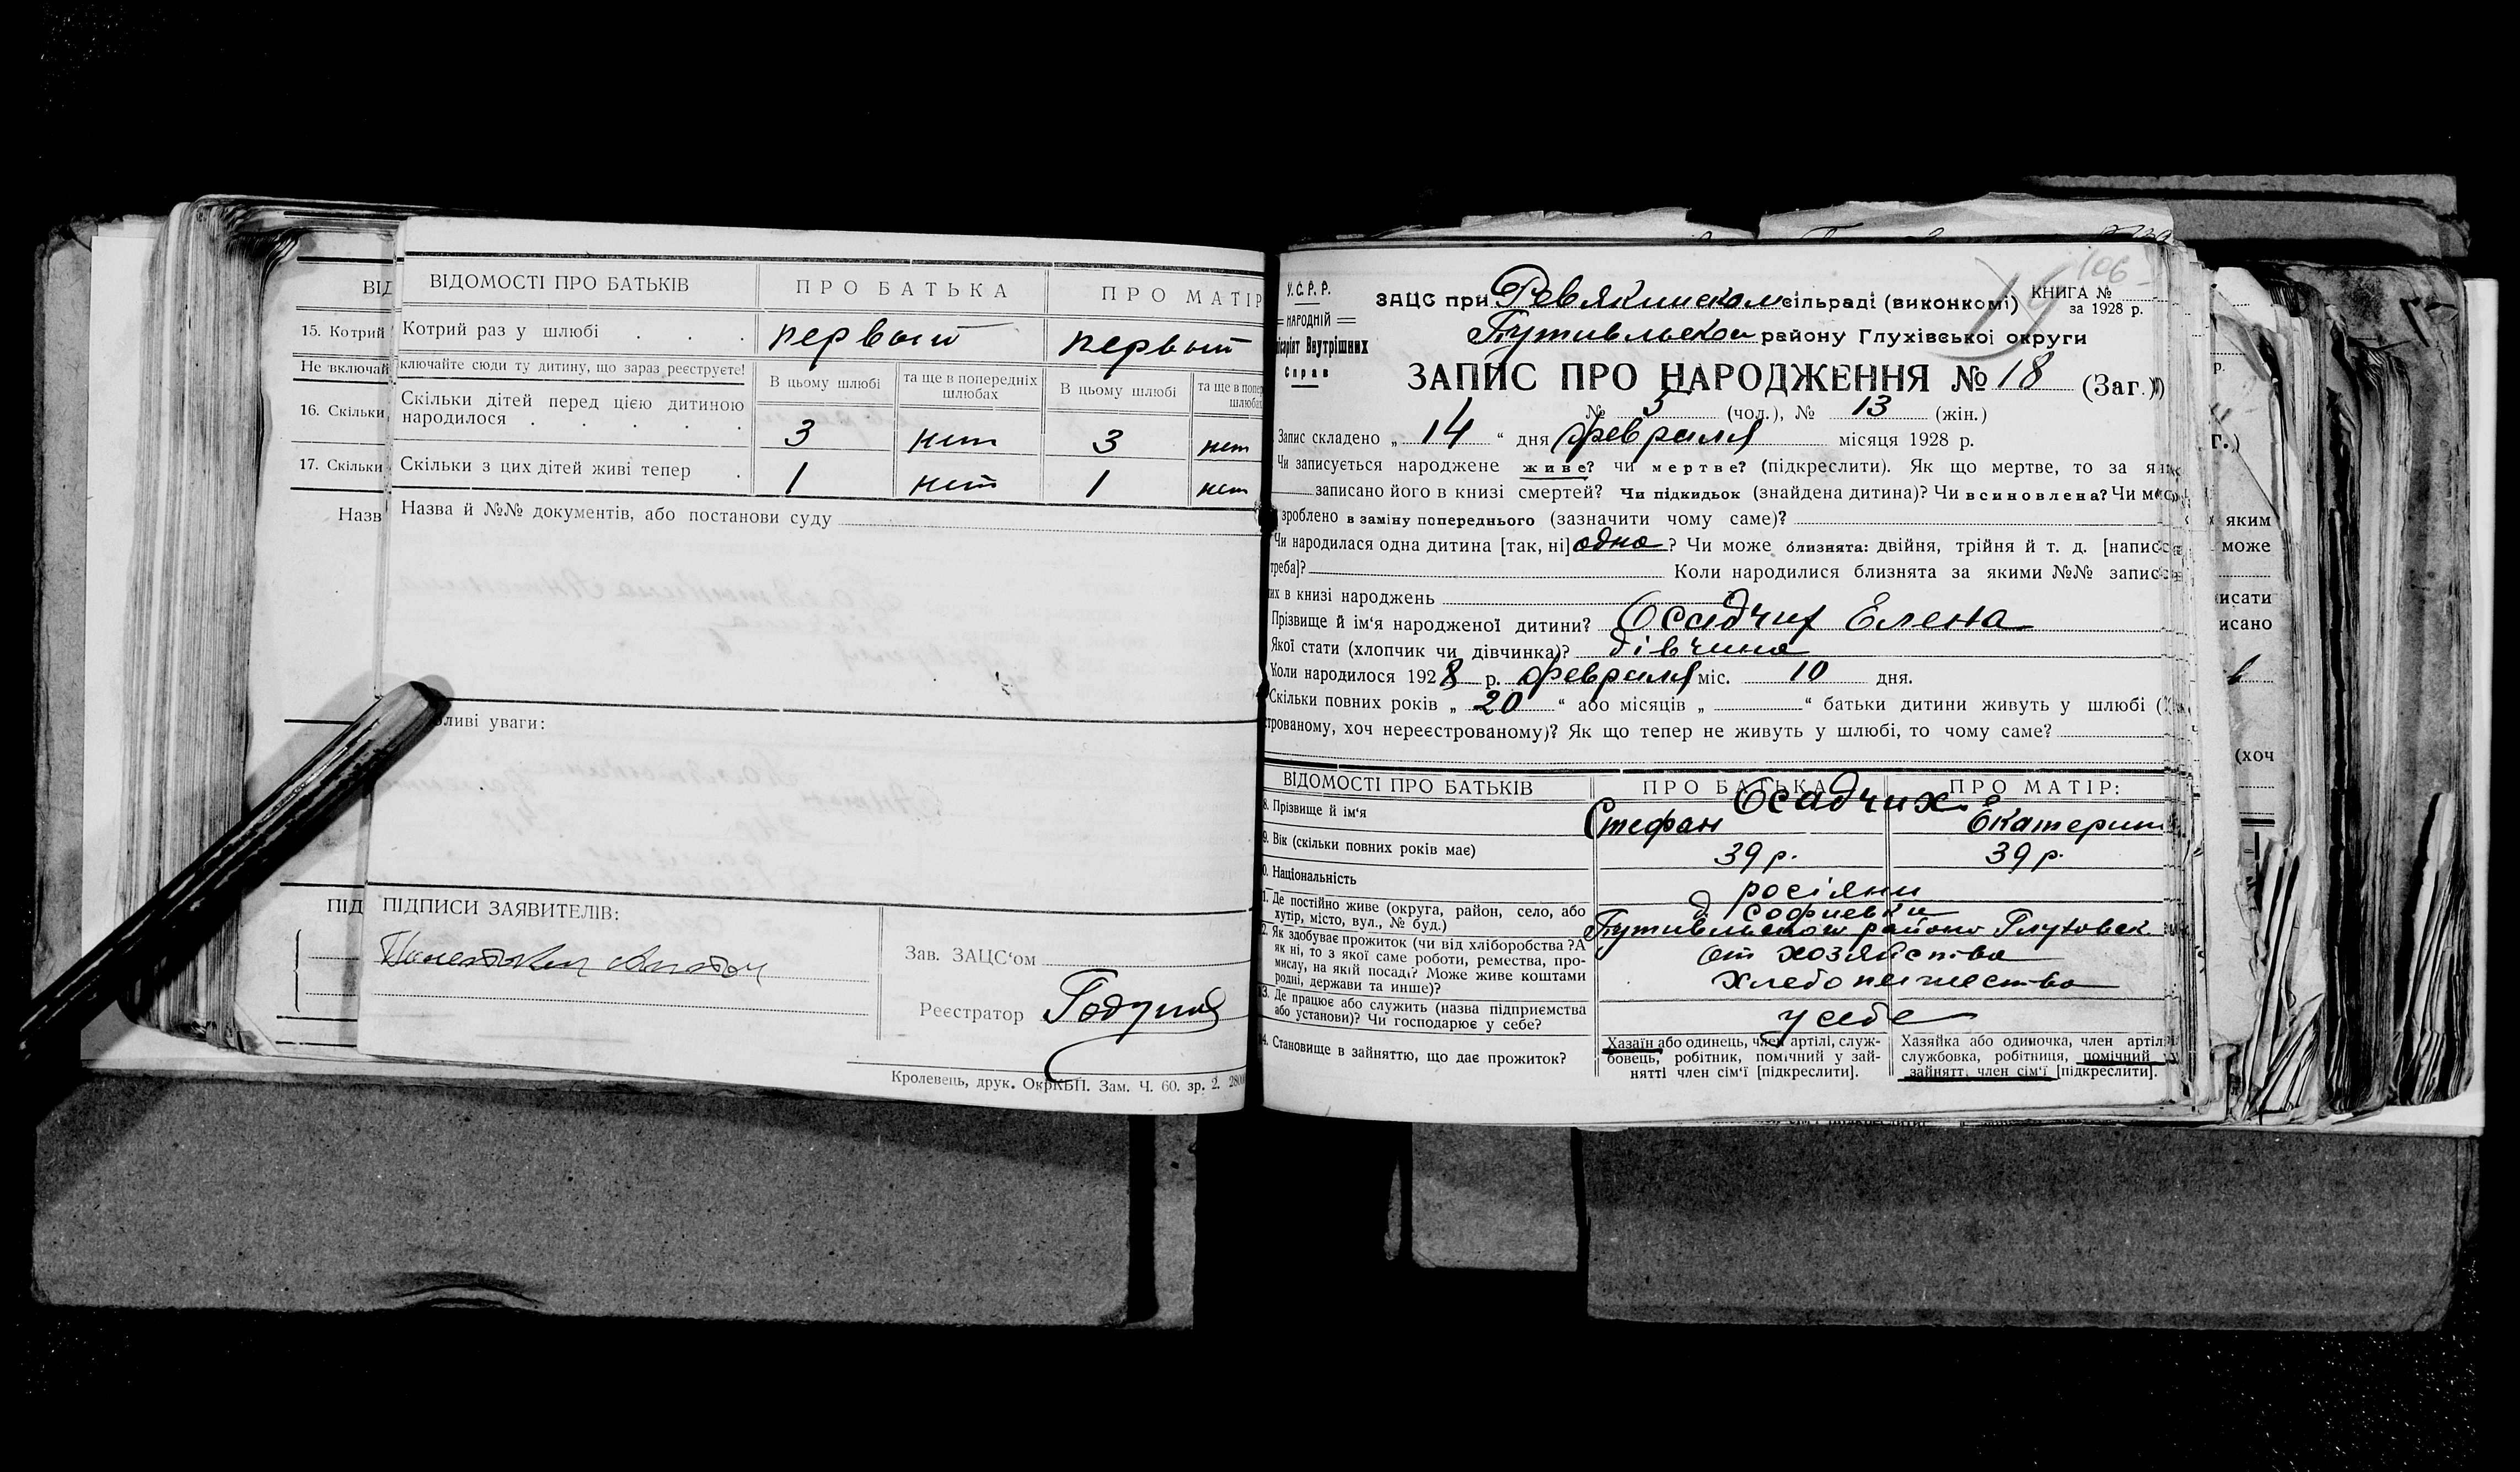 ВІД
15. Котрий
Не включай
16. Скільки
17. Скільки
Назв
ПІД
ВІДОМОСТІ ПРО БАТЬКІВ
ПРО БАТЬКА
ПРО МАТІР
Котрий раз у шлюбі . . .
первый
первый
ключайте сюди ту дитину, що зараз реєструєте!
В цьому шлюбі
та ще в попередніх шлюбах
В цьому шлюбі
Скільки дітей перед цією дитиною
народилося . . . . .
3
нет
3
нет
Скільки з цих дітей живі тепер .
1
нет
1
нет
Назва й №№ документів, або постанови суду
ливі уваги:
ПІДПИСИ ЗАЯВИТЕЛІВ:
Зав. ЗАЦС‘ом
Реєстратор
Кролевець, друк. ОкрКБП. Зам. Ч. 60. зр. 2.
У.С.Р.Р.
НАРОДНІЙ
Внутрішних
Справ
106
ЗАЦС при Ревякинском сільраді (виконкомі)
КНИГА №
за 1928 р.
Путивльском району Глухівської округи
ЗАПИС ПРО НАРОДЖЕННЯ № 18 (Заг.)
№ 5 (чол.), № 13 (жін.)
Запис складено „ 14 “ дня февраля місяця 1928 р.
Чи записується народжене живе? чи мертве? (підкреслити). Як що мертве, то за
записано його в книзі смертей? Чи підкидьок (знайдена дитина)? Чи всиновлена? Чи
зроблено в заміну попереднього (зазначити чому саме)?
Чи народилася одна дитина [так, ні] одна ? Чи може близнята: двійня, трійня й т. д.
треба]? Коли народилися близнята за якими №№
их в книзі народжень
Прізвище й ім‘я народженої дитини? Осадчих Елена
Якої стати (хлопчик чи дівчинка)? дівчина
Коли народилося 1928 р. февраля міс. 10 дня.
Скільки повних років „ 20 “ або місяців „ “ батьки дитини живуть у шлюбі
трованому, хоч нереєстрованому)? Як що тепер не живуть у шлюбі, то чому саме?
ВІДОМОСТІ ПРО БАТЬКІВ
ПРО БАТЬКА
ПРО МАТІР:
Осадчих
8. Прізвище й ім‘я
Стефан
Екатерин
9. Вік (скільки повних років має)
39 р.
39 р.
0. Національність
росіяни
1. Де постійно живе (округа, район, село, або
хутір, місто, вул., № буд.)
д. Софиевки
Путивльского району Глуховск.
2. Як здобуває прожиток (чи від хліборобства? А
як ні, то з якої саме роботи, ремества, про-
мислу, на якій посаді? Може живе коштами
родні, держави та инше)?
от хозяйства
хлебопашества
13. Де працює або служить (назва підприємства
або установи)? Чи господарює у себе?
у себе
14. Становище в зайняттю, що дає прожиток?
Хазаїн або одинець, член артілі, служ-
бовець, робітник, помічний у зай-
нятті член сім‘ї [підкреслити].
Хазяйка або одиночка, член артілі
службовка, робітниця, помічний у
зайнятт. член сім‘ї [підкреслити].
яким
може
исати
исано
(хоч